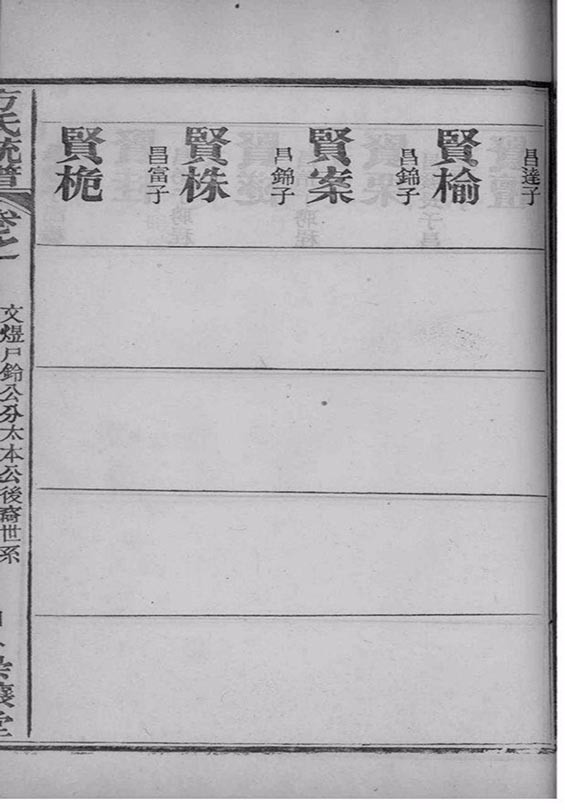 昌達子
賢榆
昌錦子
賢案
昌錦子
賢株
昌富子
賢桅
方氏統譜
卷之一
文煜戶鈴公分太本公後裔世系